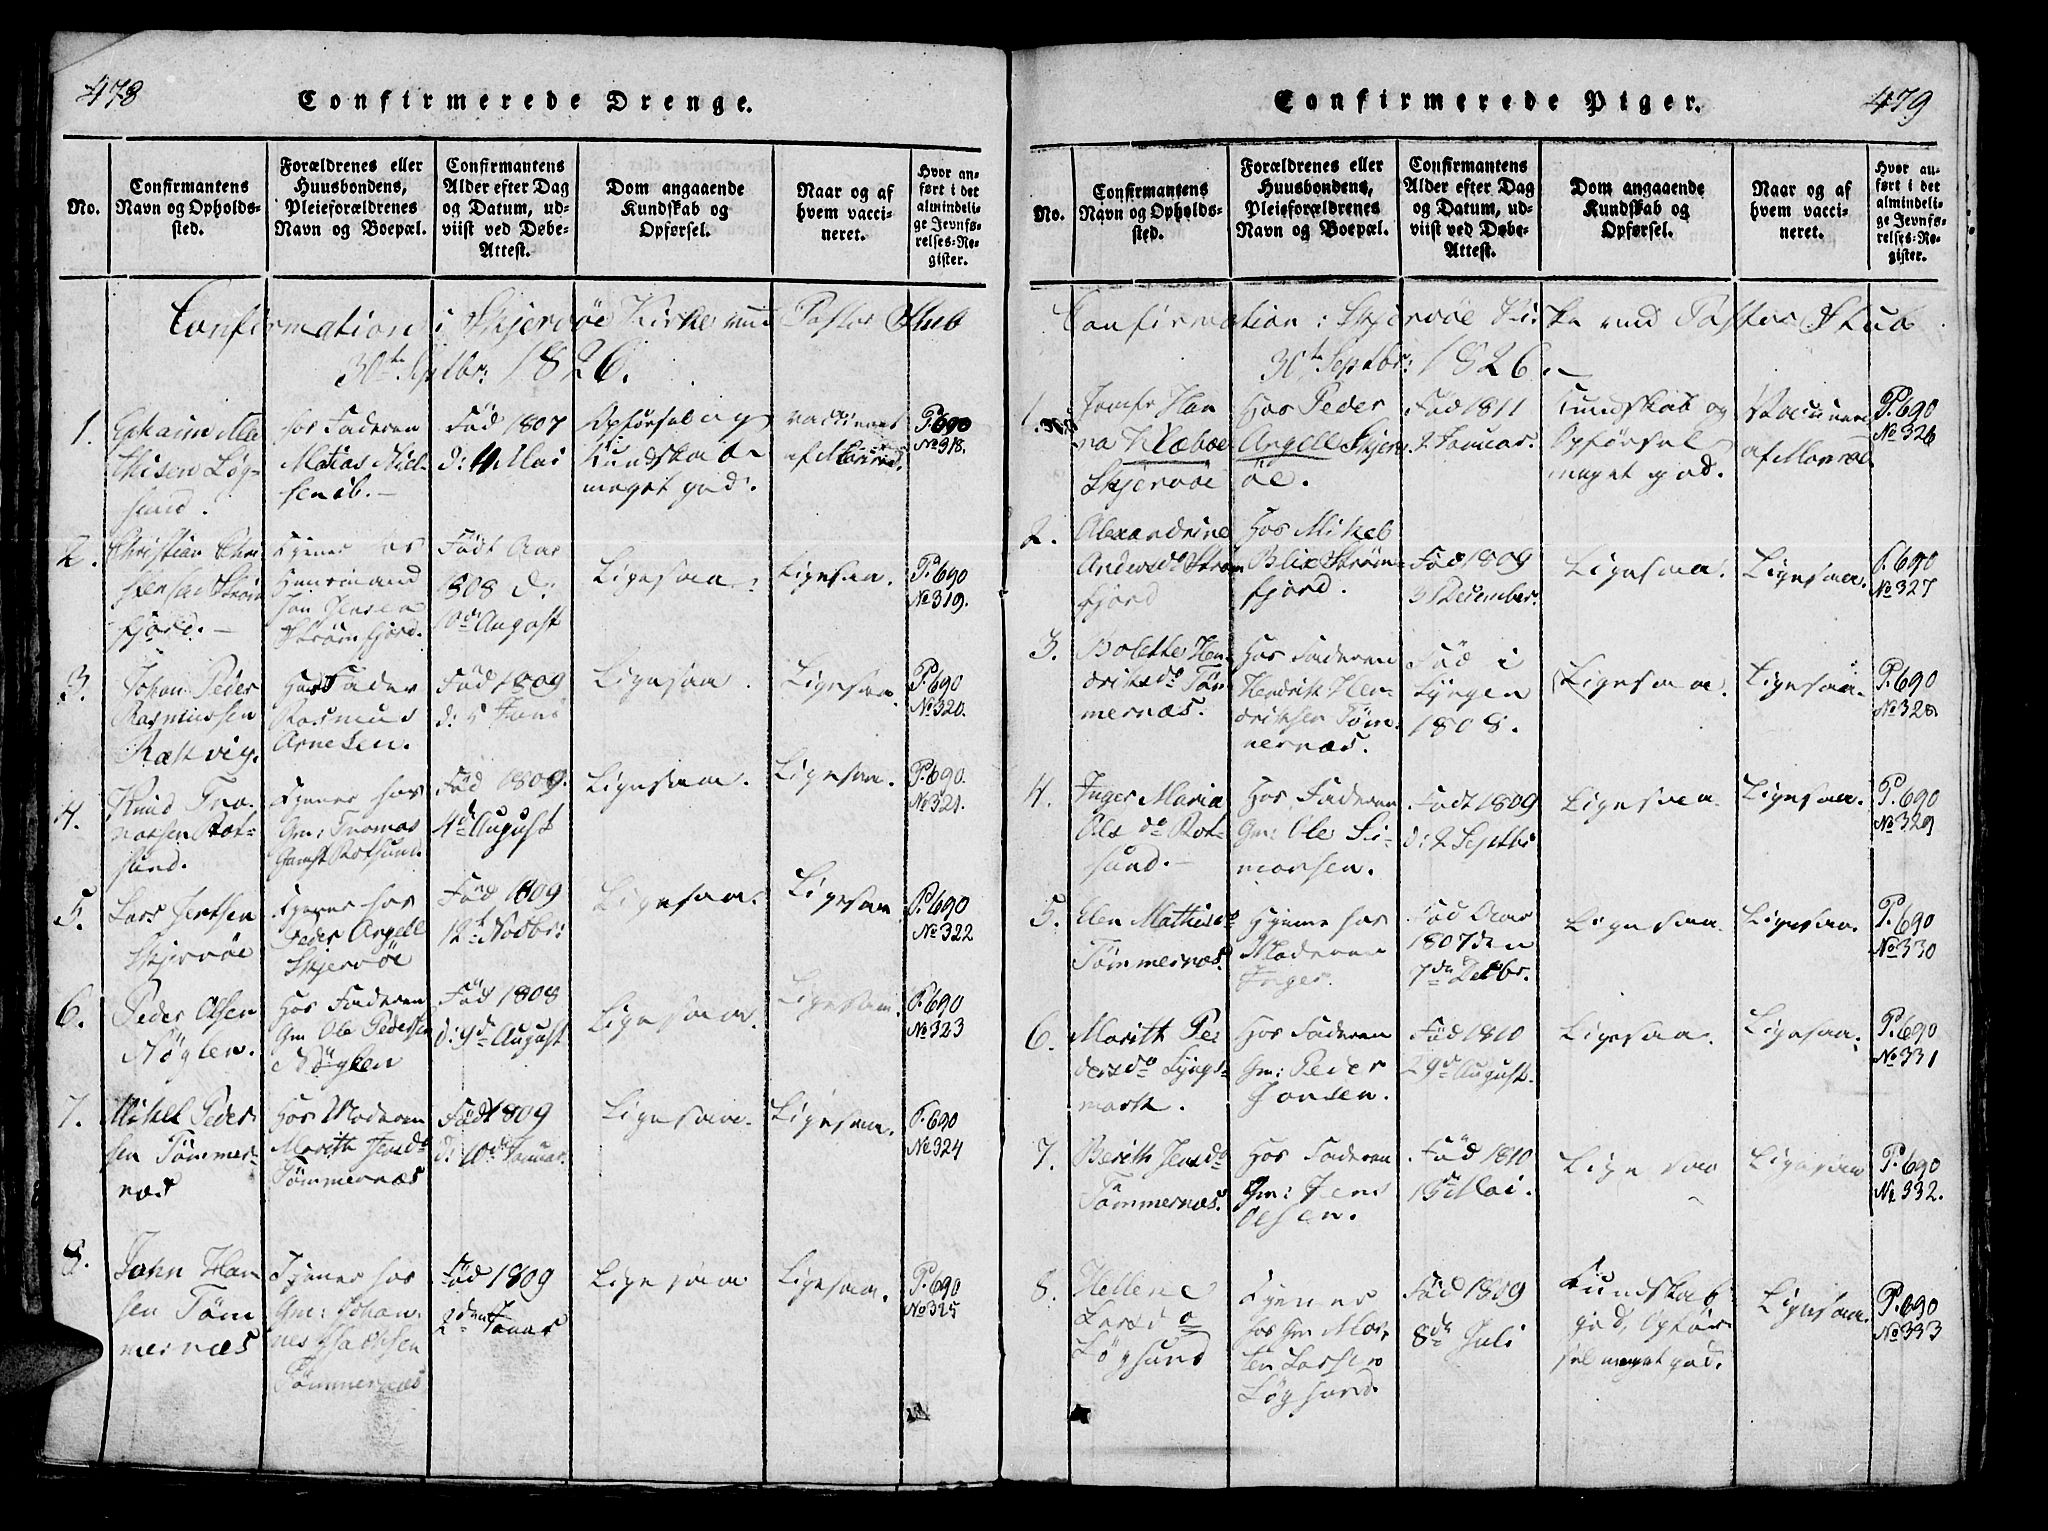 478
Confirmerede Drenge.
No.
Confirmantens
Navn og Opholds-
sted.
Forældrenes eller
Huusbondens,
Pleieforældrenes
Navn og Boepæl.
Confirmantens
Alder efter Dag
og Datum, ud-
viist ved Døbe-
Attest.
Dom angaaende
Kundskab og
Opførsel.
Naar og af
hvem vacci-
neret.
Hvor an-
ført i det
almindeli-
ge Jevnfø-
relses-Re-
gister.
Confirmation i Skjervöe Kirke ved Pastor Stub
30te Septbr: 1826.
1.
sund.
hos Faderen
Matias Niel-
Fød 1807
d: 4 Mai
Opförsel og
Kundskab
meget god.
vaccineret
af
P. 690
No 318.
2.
Christian
fjord.
Tjener hos
Huusmand
Jon Jensen
Strømfjord.
Født Aar
1808 d:
10de August
Ligesaa.
Ligesaa.
P. 690
No 319.
3.
Johan Peder
Rasmussen
Hos Fader
Rasmus
Arnesen.
Fød 1809
d: 5 Juni
Ligesaa.
Ligesaa.
P. 690
No 320.
4.
Knud Tho-
massen Rot-
sund.
Tjener hos
Gm: Thomas
Gamst Rotsund.
Fød 1809.
4de August
Ligesaa.
Ligesaa.
P. 690.
No 321.
5.
Lars Jentsen
Skjervöe
Tjener hos
Peder Angell
Skjervöe
Fød 1809
12te Novbr:
Ligesaa.
Ligesaa
P. 690
No 322
6.
Peder Olsen
Nöglen.
Hos Faderen
Gm: Ole Pedersen
Nöglen
Fød 1808
d: 9de August
Ligesaa.
Ligesaa.
P. 690
No 323
7.
Mikel Peder-
sen Tömmer-
næs
Hos Moderen
Marith Jensdo
Tömmernæs
Född 1809
d: 10de Januar.
Ligesaa.
Ligesaa.
P. 690
No 324
8.
John Han-
sen Töm
mernæs
Tjener hos
Gm: Johan-
nes Isachsen
Tömmernæs
Fød 1809
2den Januar
Ligesaa
Ligesaa.
P. 690
No 325
479
Confirmerede Piger.
No.
Confirmantens
Navn og Opholds-
sted.
Forældrenes eller
Huusbondens,
Pleieforældrenes
Navn og Boepæl.
Confirmantens
Alder efter Dag
og Datum, ud-
viist ved Døbe-
Attest.
Dom angaaende
Kundskab og
Opførsel.
Naar og af
hvem vacci-
neret.
Hvor an-
ført i det
almindeli-
ge Jevnfø-
relses-Re-
gister.
Confirmation i Skjervöe Kirke ved Pastor Stub
30te Septbr: 1826.
1.
Jomfr Han
na Klæboe
Skjervöe
Hos Peder
Angell Skjerv
öe.
Fød 1811
2 Januar.
Kundskab og
Opförsel
meget god.
Vaccinered
af Monrad
P. 690
No 326
2.
Alexandrine
Andersdo Ström
fjord
Hos Mikel
Blix Ström-
fjord.
Fød 1809
31 December.
Ligesaa.
Ligesaa.
P. 690
No 327
3.
Bolette Hen-
driksdo Töm
mernæs.
Hos Faderen
Hendrik Hen-
driksen Töm-
mernæs.
Fød i
Lyngen
1808.
Ligesaa.
Ligesaa.
P. 690
No 328
4.
Inger Maria
Olsdo Rot-
sund.
Hos Faderen
Gm: Ole Si-
monsen.
Født 1809
d: 2 Septbr
Ligesaa.
Ligesaa.
P. 690
No 329
5.
Elen Mathisdo
Tömmernæs.
Hjeme hos
Moderen
Inger.
Fød Aar
1807 den
7de Decbr.
Ligesaa.
Ligesaa.
P. 690
No 330
6.
Marith Pe
dersdo Lyngs-
mark.
Hos Faderen
Gm: Peder
Jonsen.
Fød 1810
29de August.
Ligesaa.
Ligesaa.
P. 690
No 331
7.
Berith Jensdo
Tömmernæs.
Hos Faderen
Gm: Jens
Olsen.
Fød 1810
Mai.
Ligesaa
Ligesaa
P. 690
No 332.
8.
Hellene
Larsdo
Lögsund
Tjener
hos Gm: Mor-
ten Larsen
Lögsund.
Fød 1809
8de Juli
Kundskab
god, Opför-
sel meget god.
Ligesaa.
P. 690
No 333